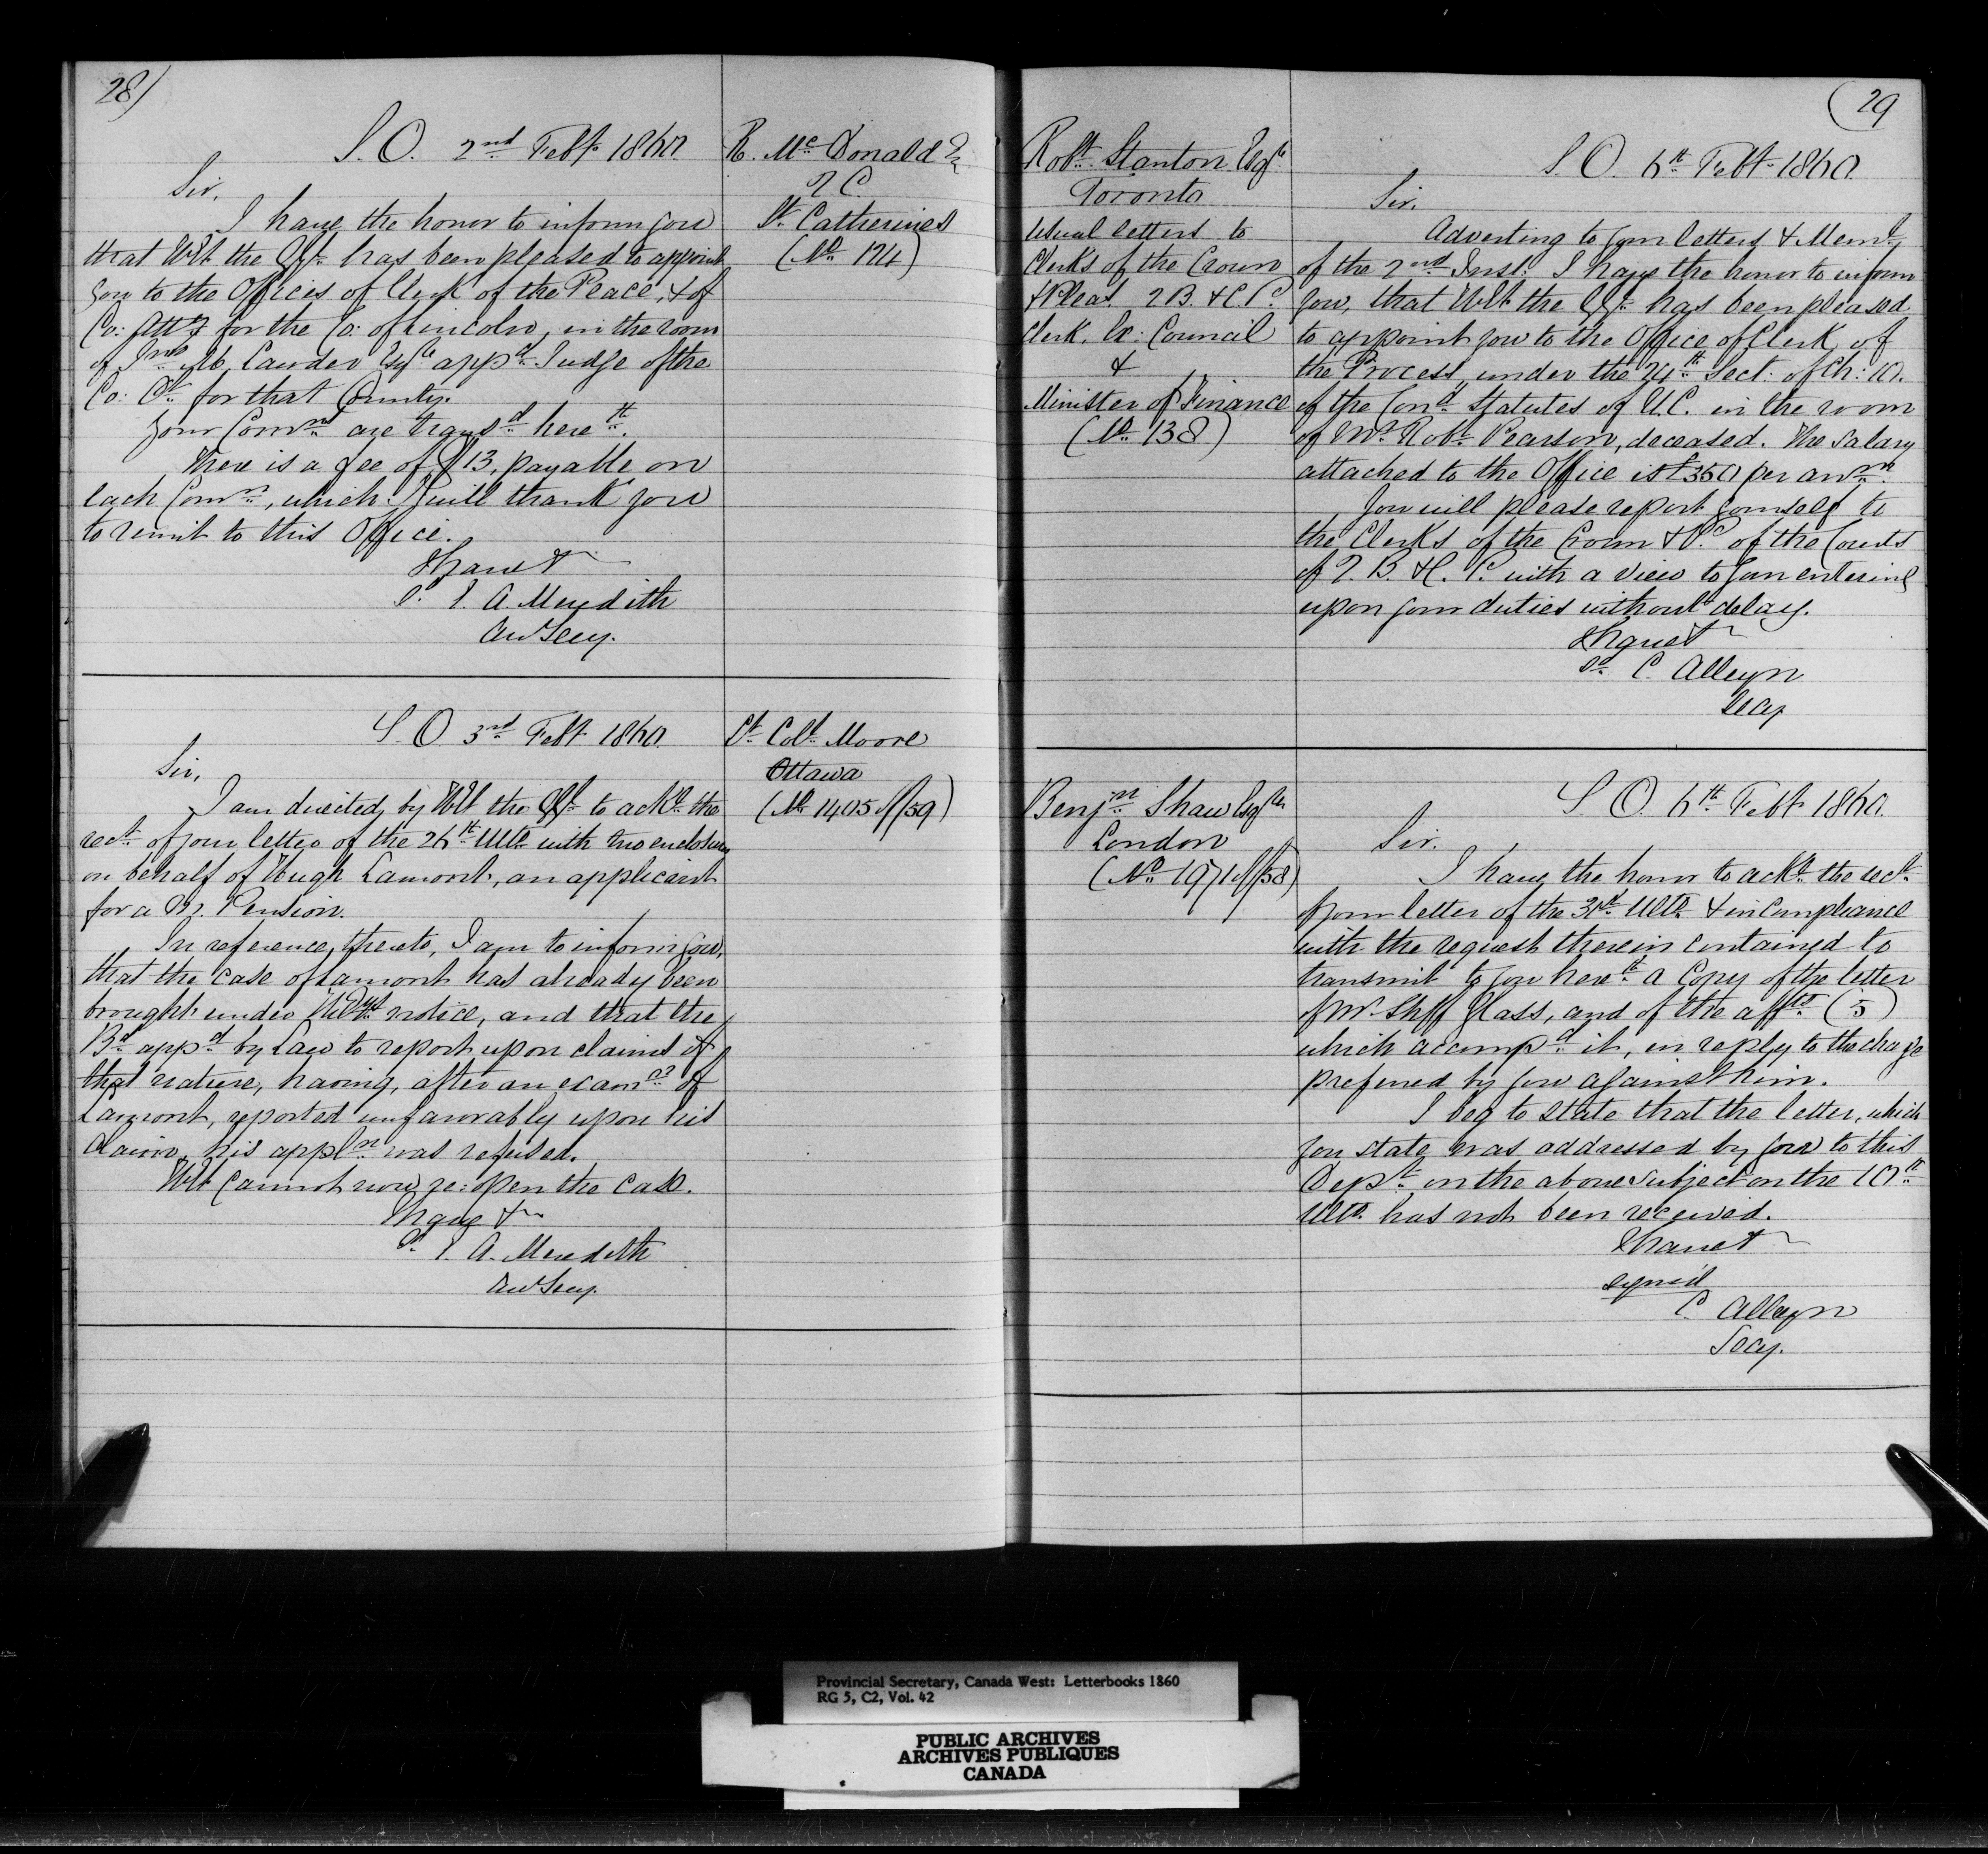 28)
S. O. 2nd Feby 1860.
R. McDonald Esq
Q C.
St Catherines
(No 124)
Sir,
I have the honor to inform you
that H E the G G has been pleased to appoint
you to the Offices of Clerk of the Peace, & of
Co: Atty for the Co: of Lincoln, in the room
of Jno Lawder Esqre appd Judge of the
Co: Ct for that County.
Your Comns are transd herewth.
There is a fee of $13, payable on
each Comn, which I will thank you
to remit to this Office.
I have &c
E. A. Meredith
Asst Secy.
S. O. 3rd Feby 1860.
Lt Coll Moore
Ottawa
(No 1405 of/59)
Sir,
I am directed by H E the G G to ackge the
rect of your letter of the 26th Ulto with two enclosures
on behalf of Hugh Lamont, an applicant
for a Pension.
In reference, thereto, I am to inform you,
that the case of Lamont has already been
brought under notice, and that the
Bd appd by Law to report upon claims of
that nature, having, after an examn of
Lamont, reported unfavorably upon his
claim, his appln was refused.
H E cannot now re:open the case.
I have &c
E. A. Meredith
Asst Secy.
(29
Robt Stanton Esqre
Toronto
Usual letters to
Clerks of the Crown
& Pleas Q B. & C. P.
Clerk, Ex: Council
&
Minister of Finance
(No 138)
S. O. 6th Feby 1860.
Sir,
Adverting to your letters & Meml
of the 2nd Inst: I have the honor to inform
you, that H E the G G has been pleased
to appoint you to the Office of Clerk of
the Process, under the 24th Sect: of Ch: 10.
of the Cond Statutes of U.C. in the room
of Mr Robt Pearson, deceased. The Salary
attached to the Office is £350 per annm.
You will please report yourself to
the Clerks of the Crown & P. of the Courts
of Q. B. & C. P. with a view to your entering
upon your duties without delay.
I have &c
Sd C. Alleyn
Secy
Benjn Shaw Esqre
London
(No 1971 of/58)
S. O. 6th Feby 1860.
Sir.
I have the honor to ackge the rect
of your letter of the 31st Ulto & in compliance
with the request therein contained to
transmit to you herewth a Copy of the letter
of Mr Shff Glass, and of the affts (5)
which accompd it, in reply to the charge
preferred by you against him.
I beg to state that the letter, which
you state was addressed by you to this
Dept on the above subject on the 10th
Ulto has not been received.
I have &c
signed
C. Alleyn
Secy.
Provincial Secretary, Canada West: Letterbooks 1860
RG 5, C2, Vol. 42
PUBLIC ARCHIVES
ARCHIVES PUBLIQUES
CANADA